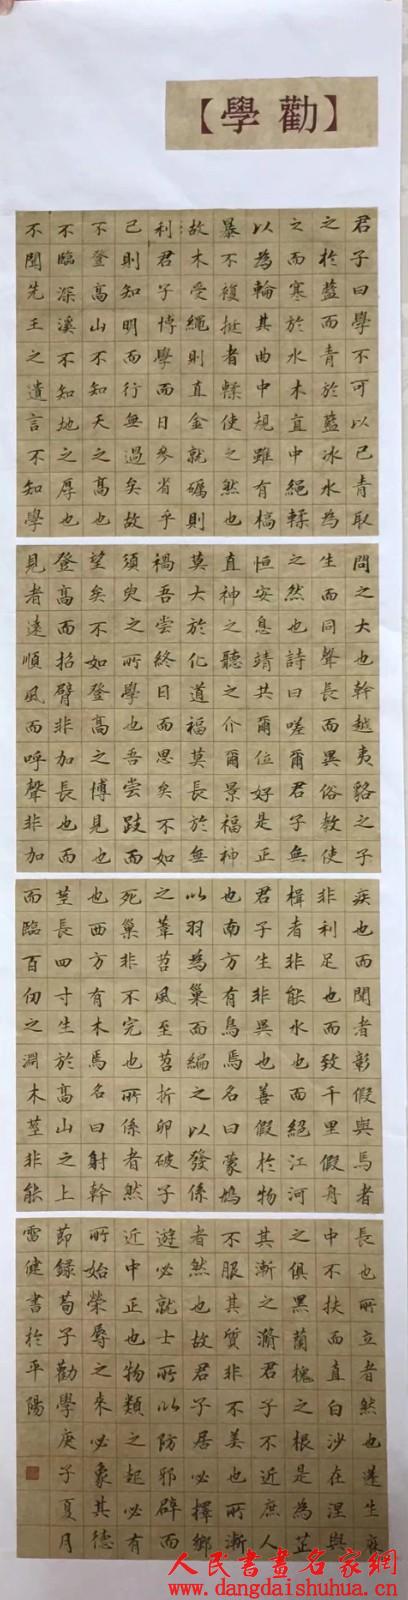 【勸學】
君子曰學不可以已青取
之於藍而青於藍冰水為
之而寒於水木直中繩輮
以為輪其曲中規雖有槁
暴不複挺者輮使之然也
故木受繩則直金就礪則
利君子博學而日參省乎
己則知明而行無過矣故
不登高山不知天之高也
不臨深溪不知地之厚也
不聞先王之遺言不知學
問之大也幹越夷貉之子
生而同聲長而異俗教使
之然也詩曰嗟爾君子無
恒安息靖共爾位好是正
直神之聽之介爾景福神
莫大於化道福莫長於無
禍吾嘗終日而思矣不如
須臾之所學也吾嘗跂而
望矣不如登高之博見也
登高而招臂非加長也而
見者遠順風而呼聲非加
疾也而聞者彰假與馬者
非利足也而致千里假舟
楫者非能水也而絕江河
君子生非異也善假於物
也南方有鳥焉名曰蒙鳩
以羽為巢而編之以發係
之葦苕風至苕折卵破子
死巢非不完也所係者然
也西方有木焉名曰射幹
莖長四寸生於高山之上
而臨百仞之淵木莖非能
長也所立者然也蓬生麻
中不扶而直白沙在涅與
之俱黑蘭槐之根是為芷
其漸之滫君子不近庶人
不服其質非不美也所漸
者然也故君子居必擇鄉
遊必就士所以防邪辟而
近中正也物類之起必有
所始榮辱之來必象其德
節錄荀子勸學庚子夏月
雷健書於平陽
人民書畫名家網
www.dangdaishuhua.cn